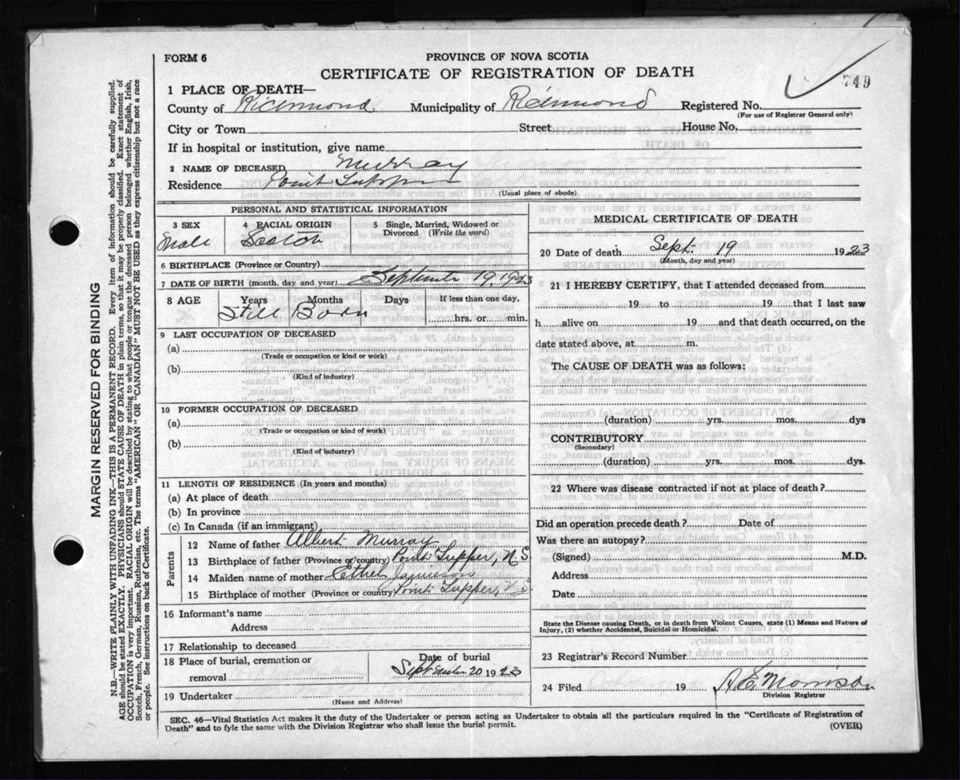 FORM 6
PROVINCE OF NOVA SCOTIA
CERTIFICATE OF REGISTRATION OF DEATH
749
1 PLACE OF DEATH—
County of Richmond Municipality of Richmond Registered No.
(For use of Registrar General only)
City or Town Street House No.
If in hospital or institution, give name
2 NAME OF DECEASED Murray
Residence Point Tupper
(Usual place of abode)
PERSONAL AND STATISTICAL INFORMATION
3 SEX 4 RACIAL ORIGIN 5 Single, Married, Widowed or
Divorced (Write the word)
Male Scotch
6 BIRTHPLACE (Province or Country)
7 DATE OF BIRTH (month, day and year) September 19, 1923
8 AGE Years Months Days If less than one day,
Still Born hrs. or min.
9 LAST OCCUPATION OF DECEASED
(a)
(Trade or occupation or kind or work)
(b)
(Kind of industry)
10 FORMER OCCUPATION OF DECEASED
(a)
(Trade or occupation or kind or work)
(b)
(Kind of industry)
11 LENGTH OF RESIDENCE (In years and months)
(a) At place of death
(b) In province
(c) In Canada (if an immigrant)
Parents
12 Name of father Albert Murray
13 Birthplace of father (Province or country) Point Tupper, N S
14 Maiden name of mother Ethel
15 Birthplace of mother (Province or country) Point Tupper, N S
16 Informant's name
Address
17 Relationship to deceased
18 Place of burial, cremation or
removal
Date of burial
September 20 1923
19 Undertaker
(Name and Address)
MEDICAL CERTIFICATE OF DEATH
20 Date of death Sept. 19 1923
(Month, day and year)
21 I HEREBY CERTIFY, that I attended deceased from
19 to 19 that I last saw
h alive on 19 and that death occurred, on the
date stated above, at m.
The CAUSE OF DEATH was as follows:
(duration) yrs. mos. dys
CONTRIBUTORY
(Secondary)
(duration) yrs. mos. dys.
22 Where was disease contracted if not at place of death?
Did an operation precede death? Date of
Was there an autopsy?
(Signed) M.D.
Address
Date
State the Disease causing Death, or in death from Violent Causes, state (1) Means and Nature of
Injury, (2) whether Accidental, Suicidal or Homicidal.
23 Registrar's Record Number
24 Filed 19 Morrison
Division Registrar
SEC. 46—Vital Statistics Act makes it the duty of the Undertaker or person acting as Undertaker to obtain all the particulars required in the "Certificate of Registration of
Death" and to fyle the same with the Division Registrar who shall issue the burial permit.
(OVER)
MARGIN RESERVED FOR BINDING
N.B.—WRITE PLAINLY WITH UNFADING INK—THIS IS A PERMANENT RECORD. Every item of information should be carefully supplied.
AGE should be stated EXACTLY. PHYSICIANS should STATE CAUSE OF DEATH in plain terms, so that it may be properly classified. Exact statement of
OCCUPATION is very important. RACIAL ORIGIN will be described by stating to what people or tongue the deceased person belonged whether English, Irish,
Scotch, French, German, Russian, Ruthenian, etc. The terms "AMERICAN" OR "CANADIAN" MUST NOT BE USED as they express citizenship but not a race
or people. See instructions on back of Certificate.